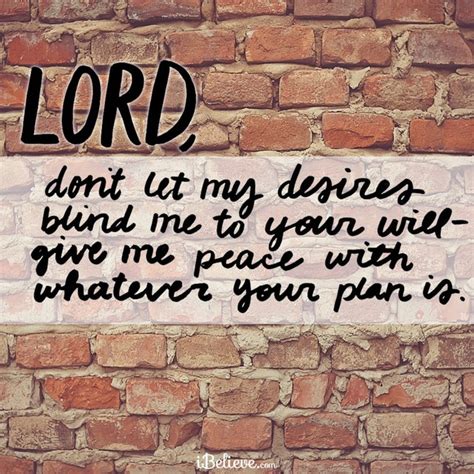 LORD,
don't let my desires
blind me to your will-
give me peace with
whatever your plan is.
iBelieve.com